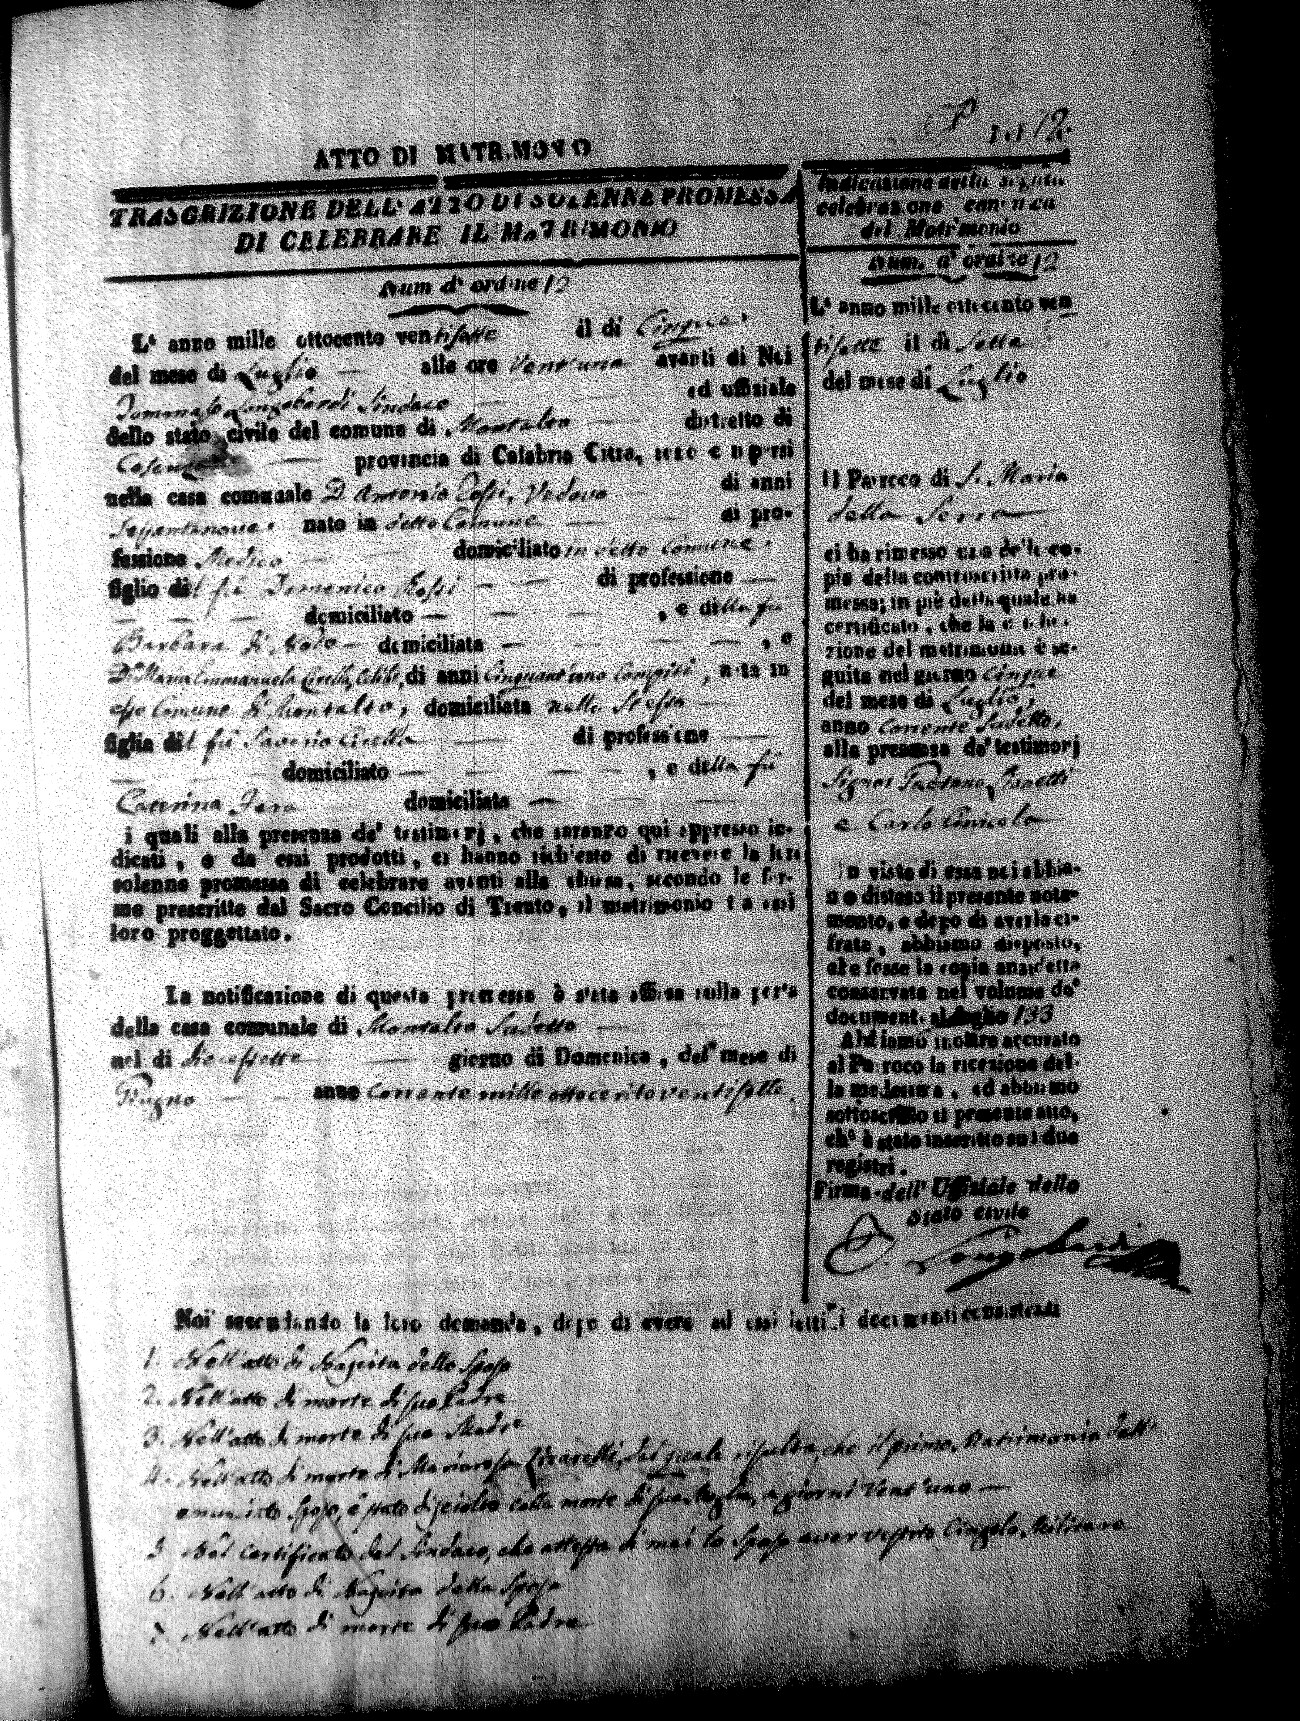 Fol 12.
ATTO DI MATRIMONIO
TRASCRIZIONE DELL' ATTO DI SOLENNE PROMESSA
DI CELEBRARE IL MATRIMONIO
Num d' ordine 12
L' anno mille ottocento ventisette il di Cinque
del mese di Luglio alle ore Vent'una avanti di Noi
Longobardi Sindaco ed uffiziale
dello stato civile del comune di Montalto distretto di
Cosenza provincia di Calabria Citra, sono comparsi
nella casa comunale D. Antonio Rossi, Vedovo di anni
nato in detto Comune di pro-
fessione Medico domiciliato in detto Comune
figlio del fù Domenico Rossi di professione
domiciliato , e della fu
Barbara domiciliata , e
D.a Maria Emmanuela di anni Cinquant'uno compiti, nata in
esso Comune di Montalto, domiciliata nello Stesso
figlia del fù Saverio di professione
domiciliato , e della fù
Caterina domiciliata
i quali alla presenza de' testimonj, che saranno qui appresso in-
dicati, e da essi prodotti, ci hanno richiesto di ricevere la loro
solenne promessa di celebrare avanti alla chiesa, secondo le for-
me prescritte dal Sacro Concilio di Trento, il matrimonio tra essi
loro proggettato.
La notificazione di questa promessa è stata affissa sulla porta
della casa comunale di Montalto Sudetto
nel di Dicessette giorno di Domenica, del mese di
Giugno anno Corrente mille ottocento ventisette.
Indicazione della seguita
celebrazione canonica
del Matrimonio
Num. d' ordine 12
L' anno mille ottocento ven
tisette il di Sette
del mese di Luglio
Il Parroco di S. Maria
della Serra
ci ha rimesso una delle co-
pie della controscritta pro-
messa; in piè della quale ha
certificato, che la celebra-
zione del matrimonio è se-
guita nel giorno Cinque
del mese di Luglio,
anno Corrente Sudetto,
alla presenza de' testimonj
Signor Gaetano
e Carlo
In vista di essa noi abbia-
mo disteso il presente nota-
mento, e dopo di averla ci-
frata, abbiamo disposto,
che fosse la copia anzidetta
conservata nel volume de'
documenti al foglio 133
Abbiamo inoltre accusato
al Parroco la ricezione del-
la medesima, ed abbiamo
sottoscritto il presente atto,
ch' è stato inscritto su i due
registri.
Firma dell' Uffiziale dello
Stato civile
D. Longobardi
Noi secondando la loro domanda, dopo di avere ad essi letti i documenti consistenti
1. Nell'atto di Nascita dello Sposo
2. Nell'atto di morte di suo Padre
3. Nell'atto di morte di sua Madre
4. Nell'atto di morte di Mariarosa dal quale risulta, che il primo Matrimonio dell'
enunciato Sposo, è stato disciolto colla morte di sua Moglie, a giorni Vent'uno
5. Nel certificato del Sindaco, che attesta di mai lo Sposo aver vestito Cingolo Militare
6. Nell'atto di Nascita della Sposa
7. Nell'atto di morte di suo Padre